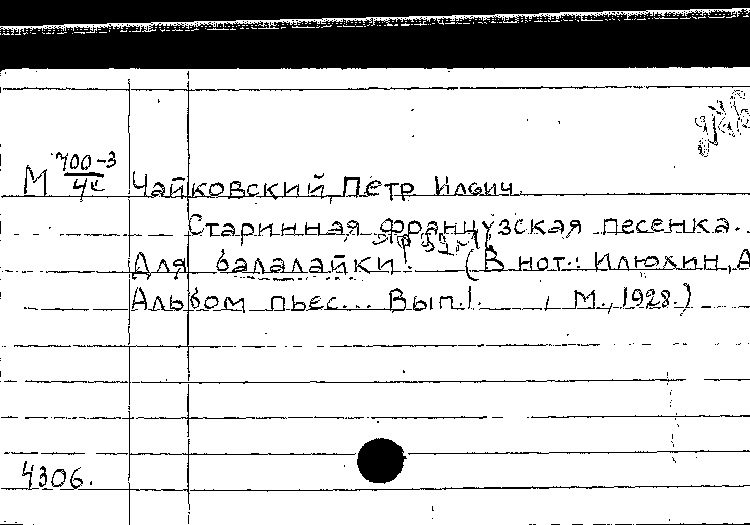 М 700-3/4к Чайковский, Петр Ильич.
Старинная французская песенка.
Для балалайки. (В нот.: Илюхин, А
Альбом пьес... Вып.1. , М., 1928.)
4306.